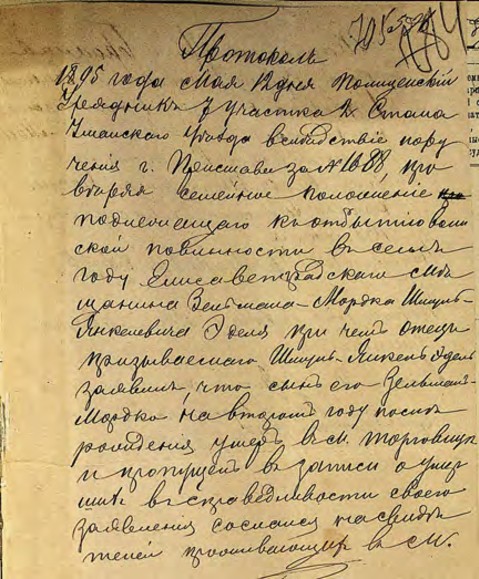 Протоколъ
1895 года Мая 12 дня Полицейскій
Урядникъ 7 участка 2 Стана
Уманскаго Уѣзда вслѣдствіе пору
ченія г. Пристава за № 1688, про
вѣряя семейное положеніе
подлежащаго къ отбытію воин
ской повинности въ семъ
году Елисаветградскаго мѣ
щанина Зельмана-Мордка Шмуль-
Янкелевича Эделя при чемъ отецъ
призываемаго Шмуль-Янкель Эдель
заявилъ, что сынъ его Зельманъ-
Мордко на второмъ году послѣ
рожденія умеръ въ м. Торговицѣ
и пропущенъ въ записи о умер
шихъ въ справедливости своего
заявленія сослался на свидѣ
телей проживающихъ въ м.